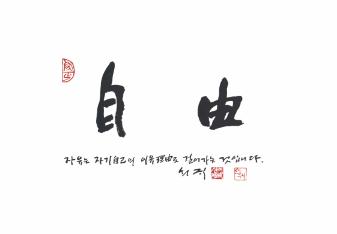 自由
자유는 자기自己의 이유理由로 걸어가는 것입니다.